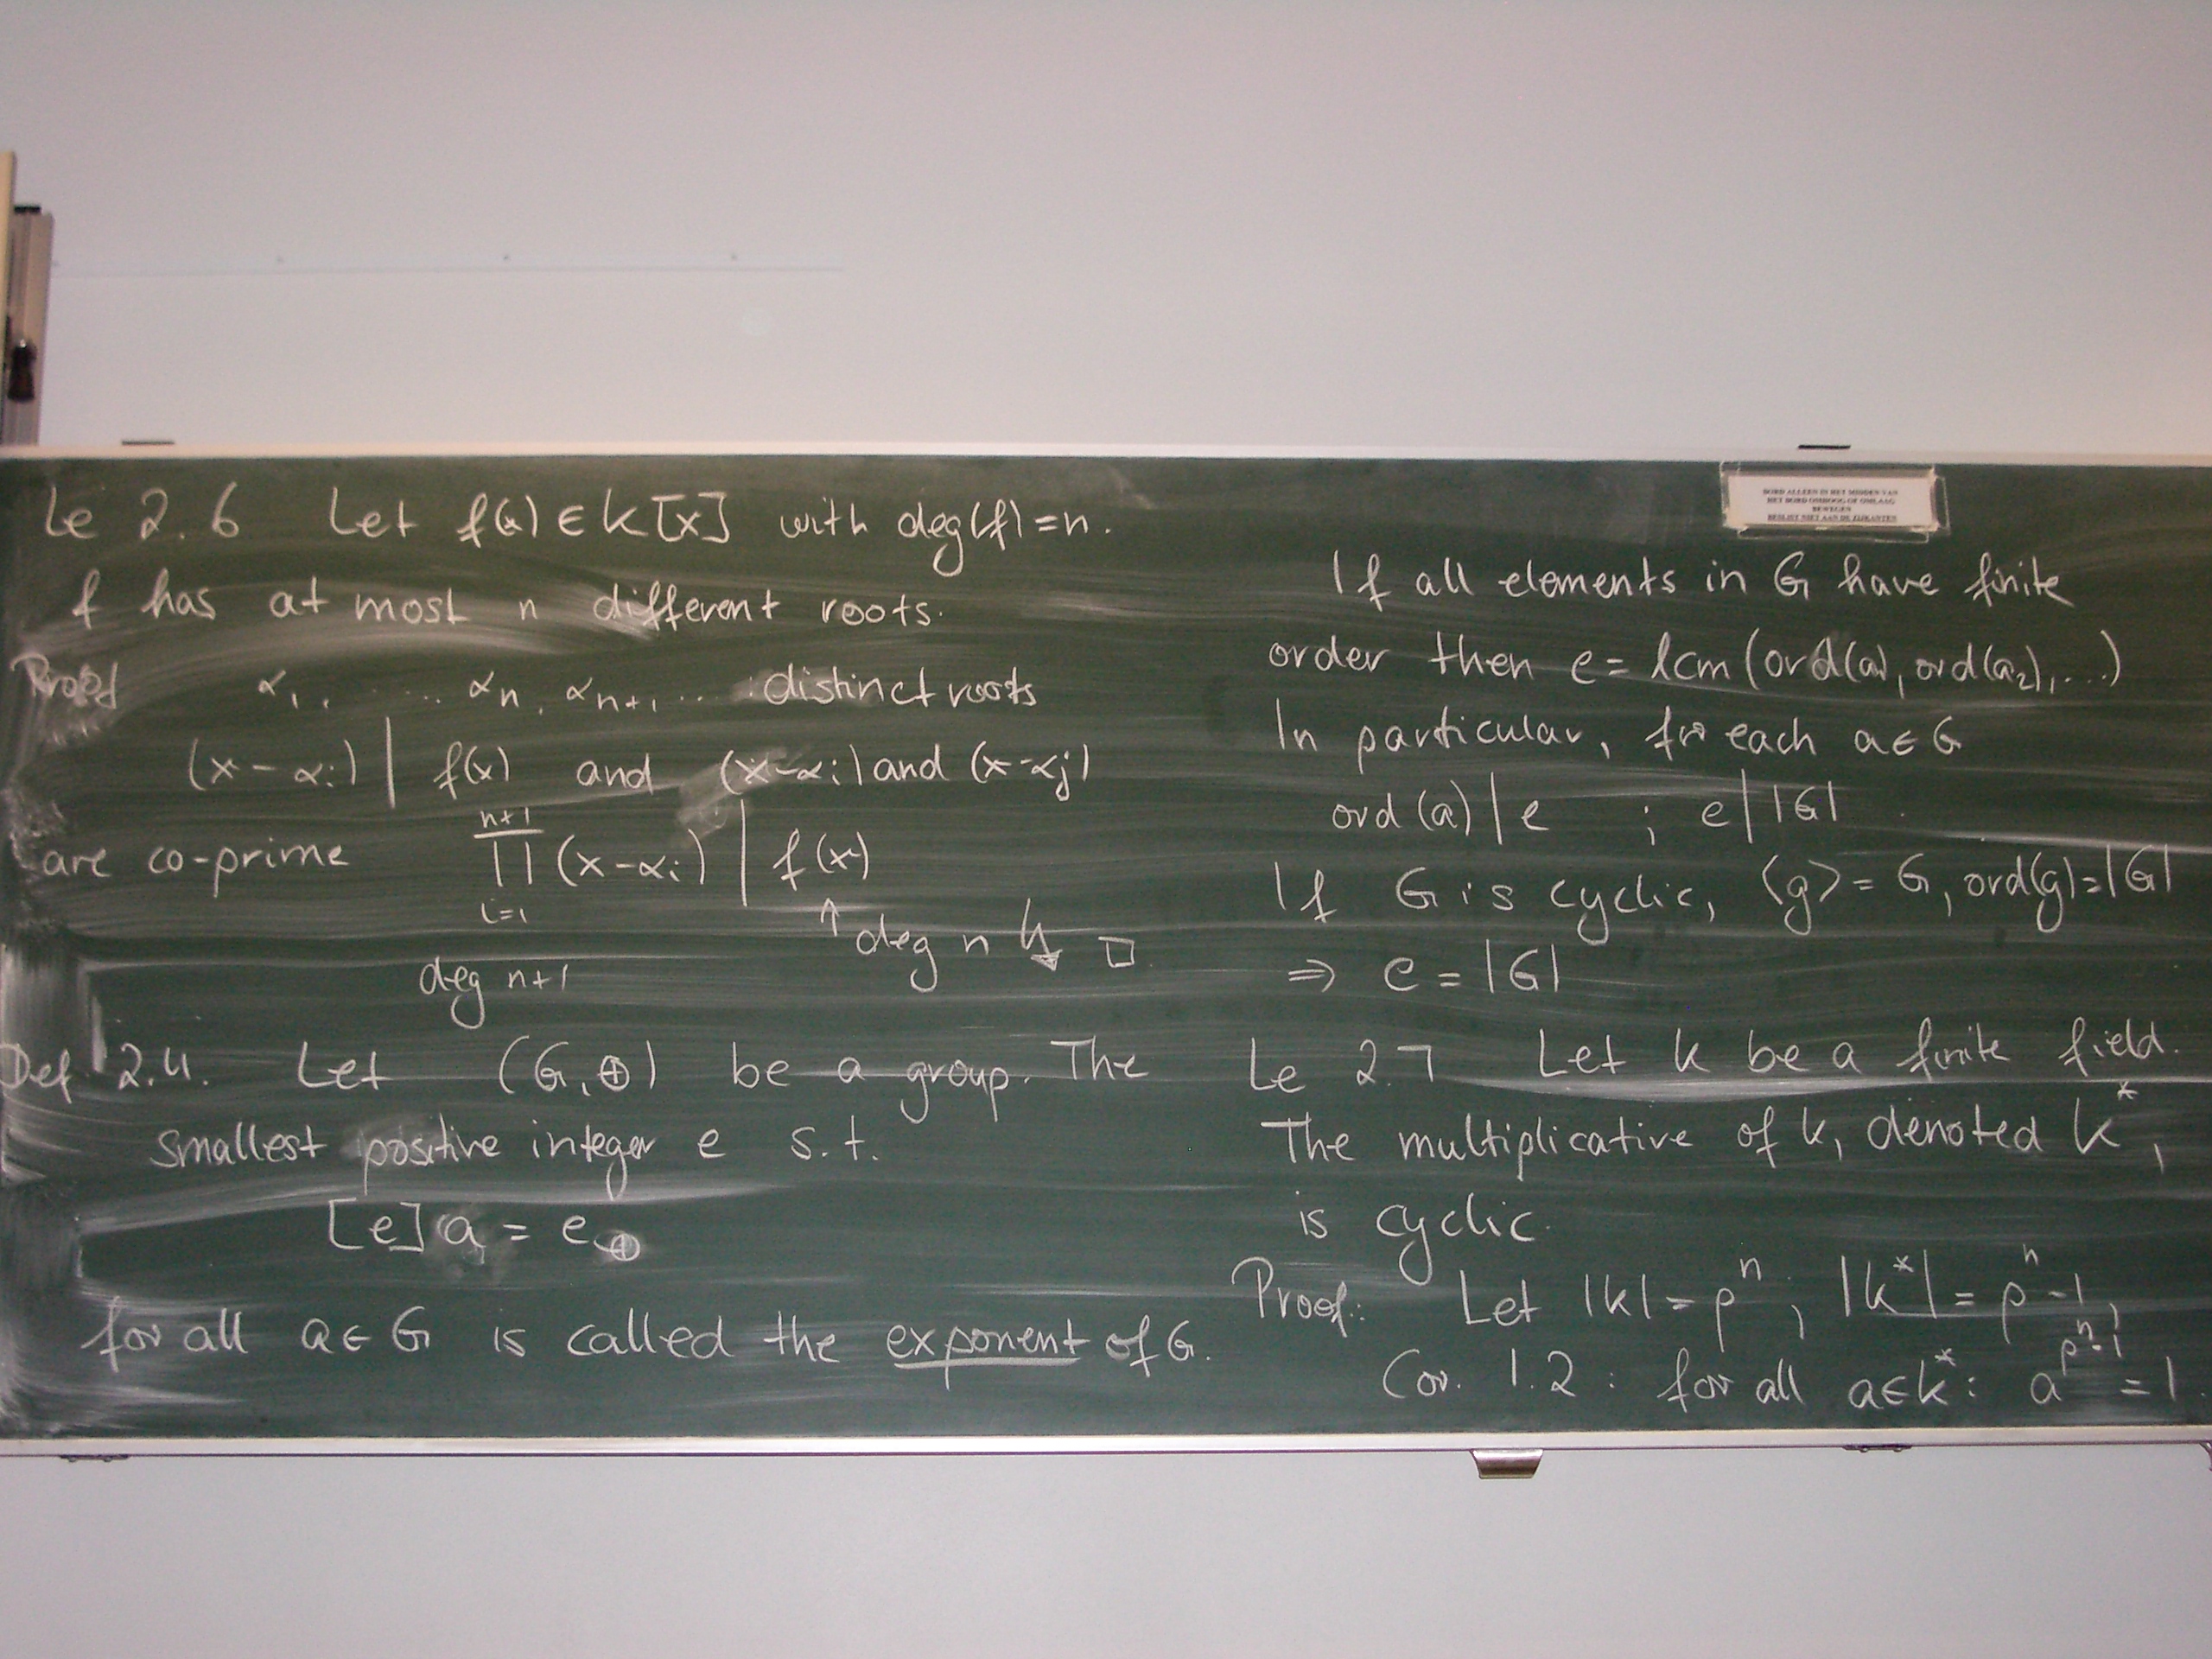 Le 2.6 Let f(x) ∈ k[x] with deg(f)=n.
f has at most n different roots.
Proof α₁, ..... αₙ, αₙ₊₁, ... distinct roots
(x-αᵢ) | f(x) and (x-αᵢ) and (x-αⱼ)
are co-prime ∏ᵢ₌₁ⁿ⁺¹ (x-αᵢ) | f(x)
deg n+1 ↑ deg n ↯ □
Def 2.4. Let (G,⊕) be a group. The
smallest positive integer e s.t.
[e]a = e⊕
for all a∈G is called the exponent of G.
BORD ALLEEN IN HET MIDDEN VAN
HET BORD OMHOOG OF OMLAAG
BEWEGEN
BESLIST NIET AAN DE ZIJKANTEN
If all elements in G have finite
order then e = lcm(ord(a₁), ord(a₂), ...)
In particular, for each a∈G
ord(a) | e ; e | |G|
If G is cyclic, ⟨g⟩ = G, ord(g)=|G|
⇒ e = |G|
Le 2.7 Let k be a finite field.
The multiplicative of k, denoted k*,
is cyclic.
Proof: Let |k| = pⁿ, |k*| = pⁿ-1,
Cor. 1.2: for all a∈k*: a^(pⁿ-1) = 1.